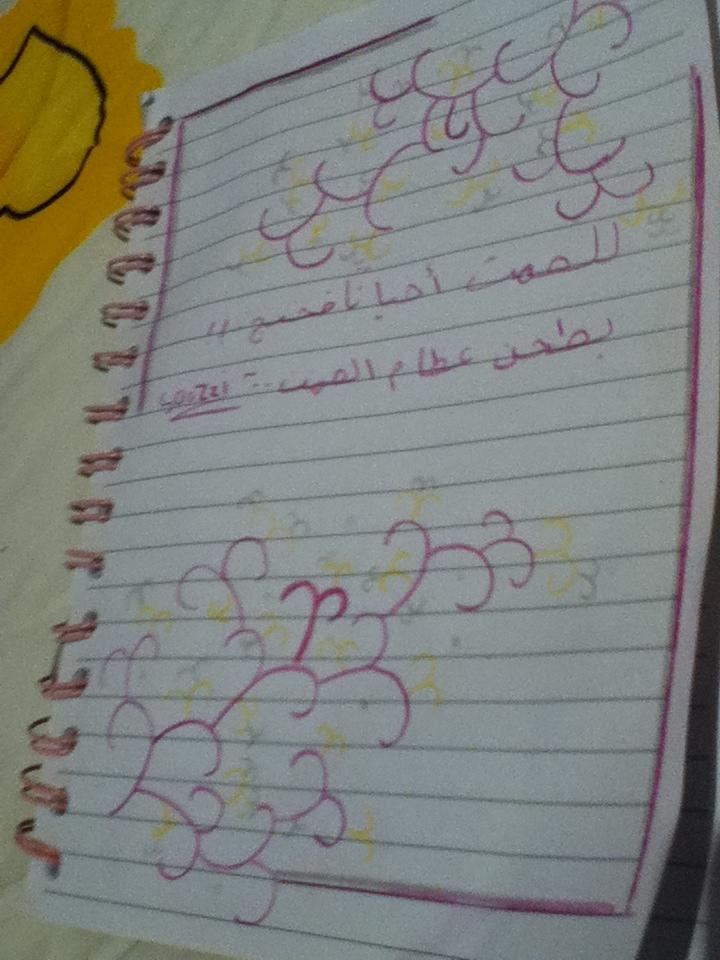 للصمت أحيانا ضجيج ,,
يطحن عظام الصمت ..